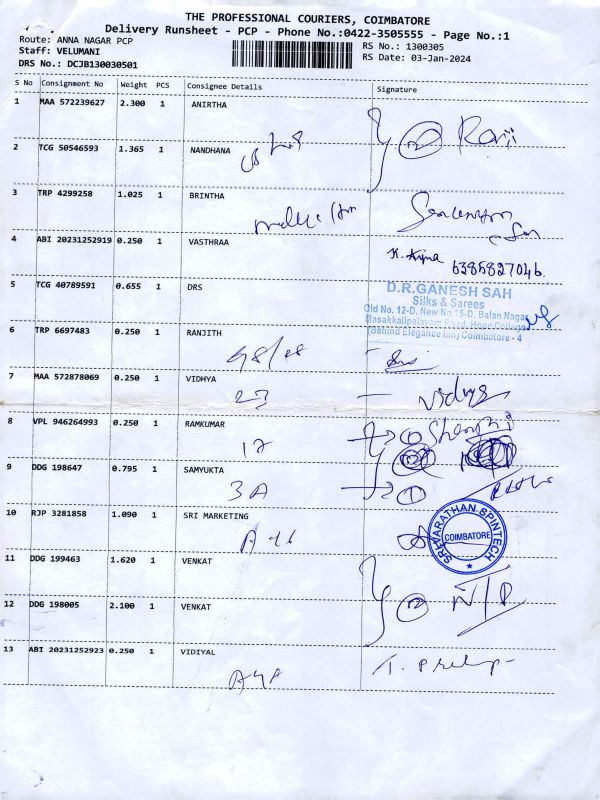 THE PROFESSIONAL COURIERS, COIMBATORE
Delivery Runsheet - PCP - Phone No.:0422-3505555 - Page No.:1
Route: ANNA NAGAR PCP
RS No.: 1300305
Staff: VELUMANI
RS Date: 03-Jan-2024
DRS No.: DCJB130030501
S No Consignment No Weight PCS Consignee Details Signature
1 MAA 572239627 2.300 1 ANIRTHA
2 Ravi
2 TCG 50546593 1.365 1 NANDHANA
3 TRP 4299258 1.025 1 BRINTHA
4 ABI 20231252919 0.250 1 VASTHRAA
6385827046
5 TCG 40789591 0.655 1 DRS
D.R.GANESH SAH
Silks & Sarees
Old No. 12-D, New No.15-D, Balan Nagar
Masakkalipalayam Road, Hope College
(Behind Elegance Inn) Coimbatore - 4
6 TRP 6697483 0.250 1 RANJITH
7 MAA 572878069 0.250 1 VIDHYA
23 - Vidhya
8 VPL 946264993 0.250 1 RAMKUMAR
12
9 DDG 198647 0.795 1 SAMYUKTA
3A
10 RJP 3281858 1.090 1 SRI MARKETING
SRIVARATHAN SPINTECH
COIMBATORE
11 DDG 199463 1.620 1 VENKAT
2
12 DDG 198005 2.100 1 VENKAT
13 ABI 20231252923 0.250 1 VIDIYAL